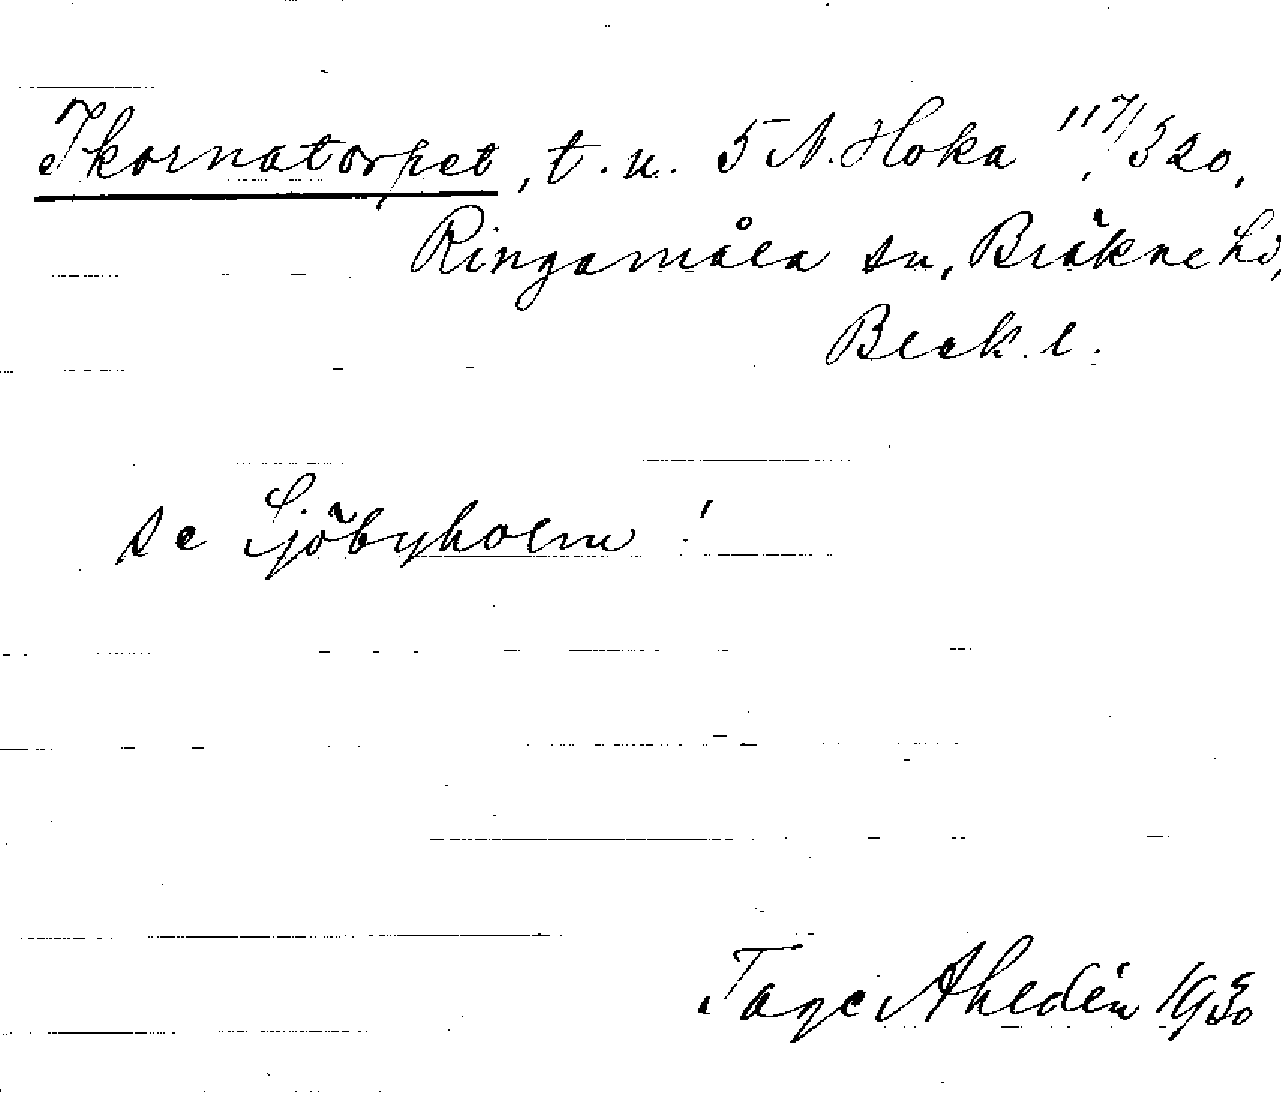 Ikornatorpet, t.u. 5 N. Hoka 117/320,
Ringamåla sn, Bräkne hd,
Blek. l.
se Sjöbyholm!
Tage Ahledén 1930